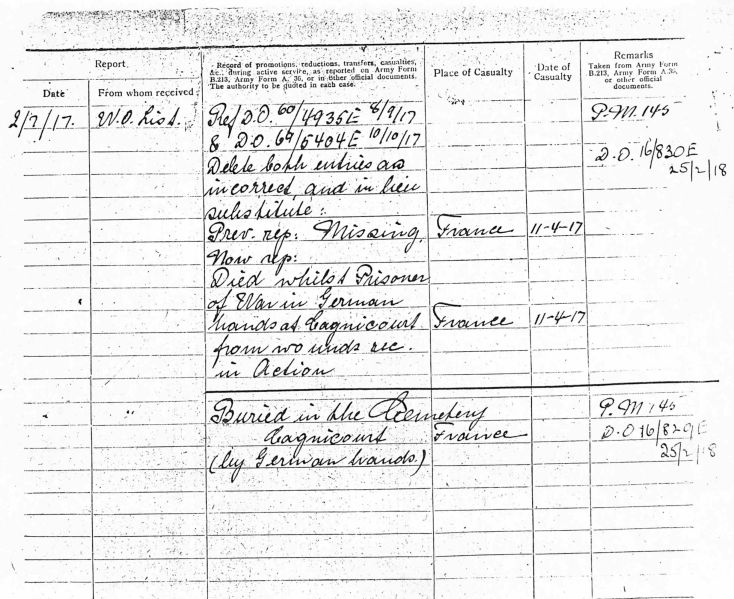 Report
Record of promotions, reductions, transfers, casualties,
&c., during active service, as reported on Army Form
B.213, Army Form A. 36, or in other official documents.
The authority to be quoted in each case.
Place of Casualty
Date of
Casualty
Remarks
Taken from Army Form
B.213, Army Form A.36,
or other official
documents.
Date
From whom received
2/7/17. W.O. List. Ref D.O. 60/4935E 8/9/17 P.M. 145
& D.O. 69/5404E 10/10/17
D.O. 16/830E
25/2/18
Delete both entries as
incorrect and in lieu
substitute:
Prev. rep: Missing. France 11-4-17
Now rep:
Died whilst Prisoner
of War in German
hands at Cagnicourt France 11-4-17
from wounds rec.
in Action
" Buried in the Cemetery P.M 145
Cagnicourt France D.O 16/829E
25/2/18
(by German hands.)